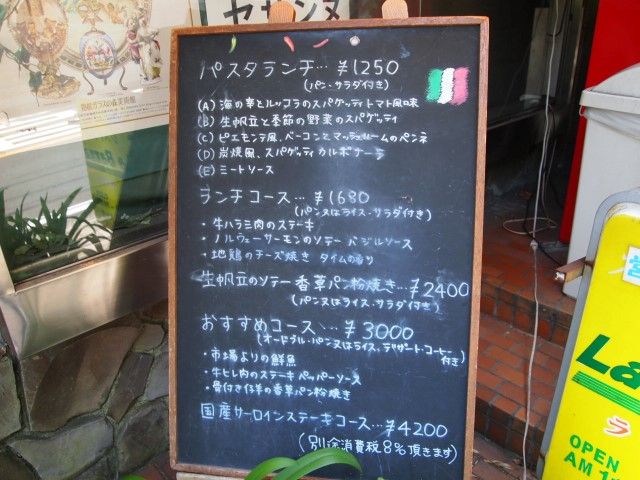 セザンヌ
箱根ガラスの森美術館
パスタランチ…¥1250
(パン・サラダ付き)
(A) 海の幸とルッコラのスパゲッティトマト風味
(B) 生帆立と季節の野菜のスパゲッティ
(C) ピエモンテ風、ベーコンとマッシュルームのペンネ
(D) 炭焼風、スパゲッティカルボナーラ
(E) ミートソース
ランチコース…¥1680
(パン又はライス・サラダ付き)
・牛ハラミ肉のステーキ
・ノルウェーサーモンのソテー バジルソース
・地鶏のチーズ焼き タイムの香り
生帆立のソテー香草パン粉焼き…¥2400
(パン又はライス・サラダ付き)
おすすめコース…¥3000
(オードブル・パン又はライス、デザート・コーヒー付き)
・市場よりの鮮魚
・牛ヒレ肉のステーキペッパーソース
・骨付き仔羊の香草パン粉焼き
国産サーロインステーキコース…¥4200
(別途消費税8%頂きます)
La
ラ
OPEN
AM 1